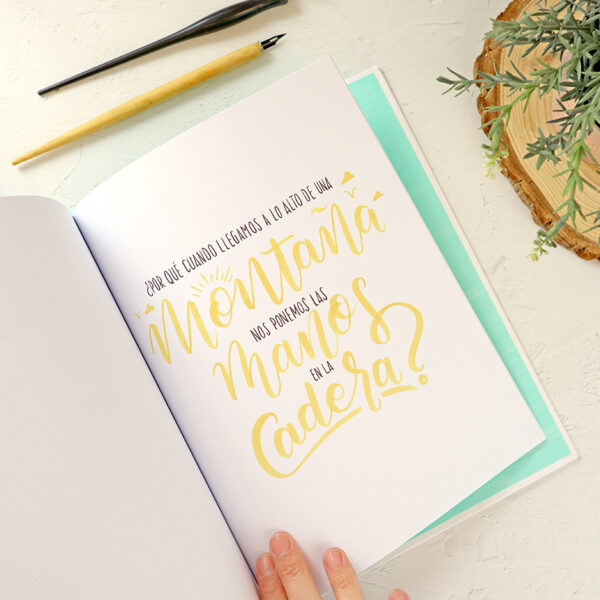 ¿POR QUÉ CUANDO LLEGAMOS A LO ALTO DE UNA
Montaña
NOS PONEMOS LAS
manos
EN LA
Cadera?